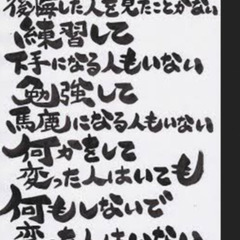 後悔した人を見たことがない
練習して
下手になる人もいない
勉強して
馬鹿になる人もいない
何かをして
変った人はいても
何もしないで
変った人はいない